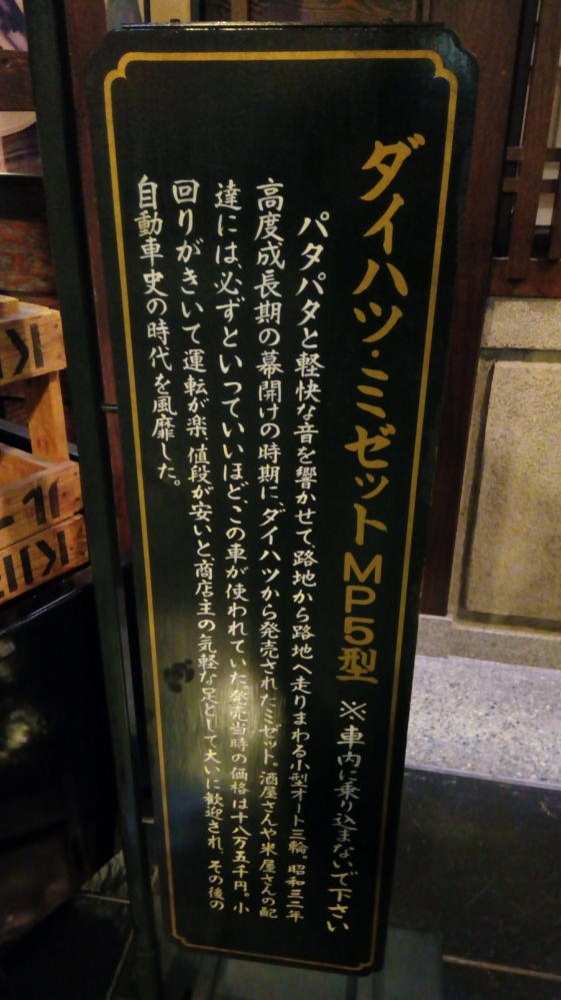 ダイハツ・ミゼットMP5型 ※車内に乗り込まないで下さい
パタパタと軽快な音を響かせて、路地から路地へ走りまわる小型オート三輪。昭和三二年
高度成長期の幕開けの時期に、ダイハツから発売されたミゼット。酒屋さんや米屋さんの配
達には、必ずといっていいほど、この車が使われていた。発売当時の価格は十八万五千円。小
回りがきいて運転が楽、値段が安いと、商店主の気軽な足として大いに歓迎され、その後の
自動車史の時代を風靡した。